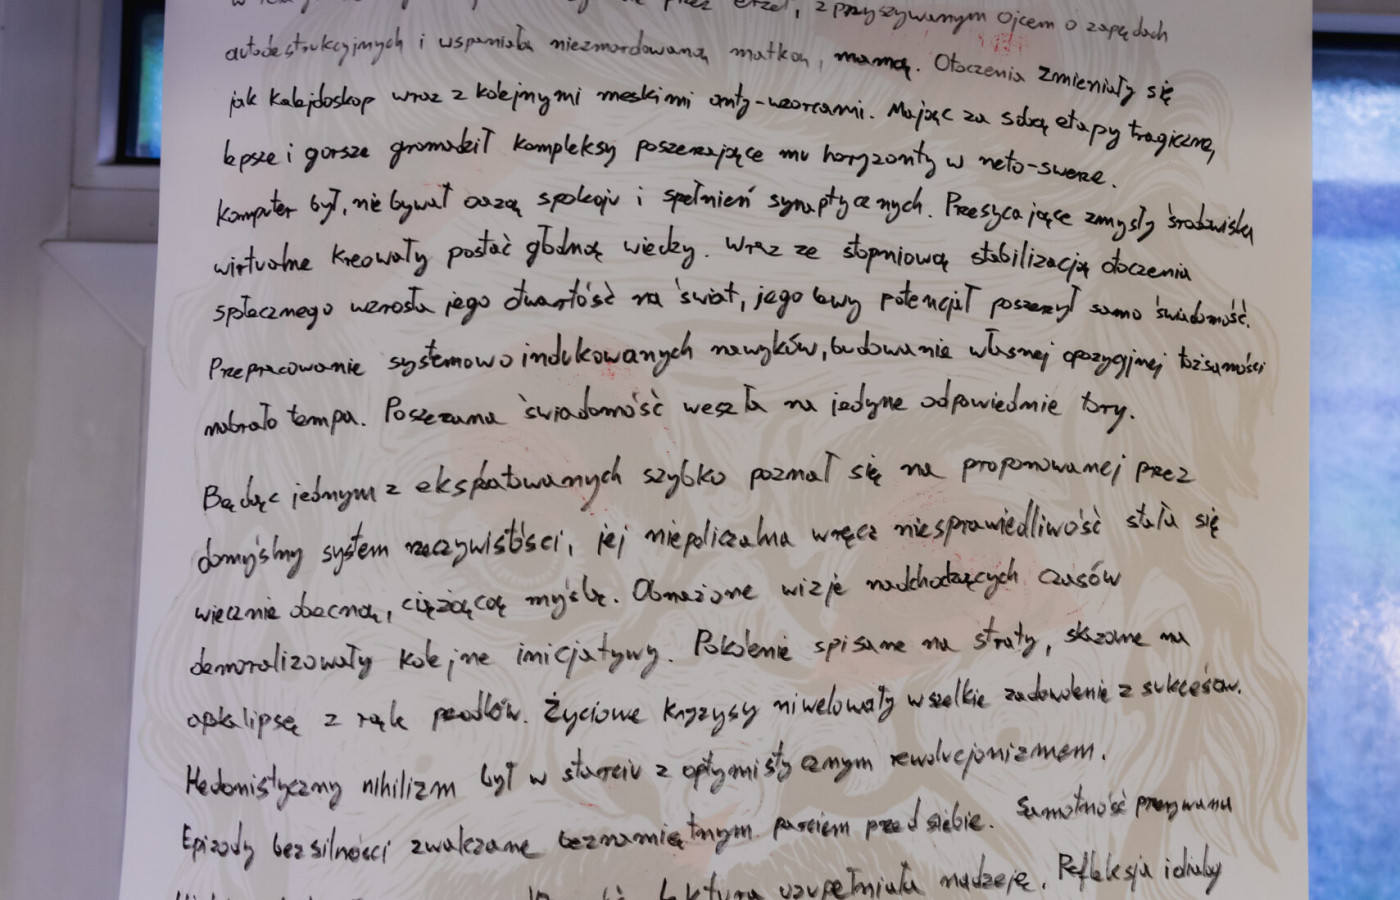 przez orzeł, z przyszywanym ojcem o zapędach
autodestrukcyjnych i wspaniałą niezmordowaną matką, mamą. Otoczenia zmieniały się
jak kalejdoskop wraz z kolejnymi meskimi anty-wzorcami. Mając za sobą etapy tragiczne,
lepsze i gorsze gromadził kompleksy poszerzające mu horyzonty w neto-swerze.
Komputer był, nie bywał oazą spokoju i spełnień synaptycznych. Przesycające zmysły środowiska
wirtualne kreowały postać głodną wiedzy. Wraz ze stopniową stabilizacją otoczenia
społecznego wzrosła jego otwartość na świat, jego lewy potencjał poszerzył samo świadomość.
Przepracowanie systemowo indukowanych nawyków, budowanie własnej opozycyjnej tożsamości
nabrało tempa. Poszerzana świadomość weszła na jedyne odpowiednie tory.
Będąc jednym z eksploatowanych szybko poznał się na proponowanej przez
domyślny system rzeczywistości, jej niepoliczalna wręcz niesprawiedliwość stała się
wiecznie obecną, ciężącą myślą. Obnażone wizje nadchodzących czasów
demoralizowały kolejne inicjatywy. Pokolenie spisane na straty, skazane na
apokalipsę z rąk przodków. Życiowe kryzysy niwelowały wszelkie zadowolenie z sukcesów.
Hedonistyczny nihilizm był w starciu z optymistycznym rewolucjonizmem.
Epizody bezsilności zwalczane beznamiętnym parciem przed siebie. Samotność przerywana
lektura uzupełniała nadzieję. Refleksja i